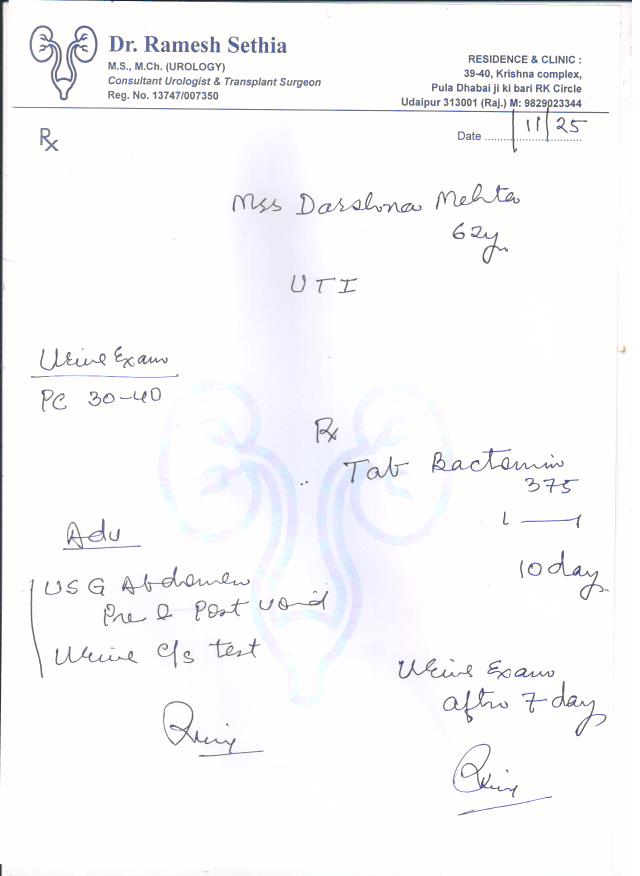 Dr. Ramesh Sethia
M.S., M.Ch. (UROLOGY)
Consultant Urologist & Transplant Surgeon
Reg. No. 13747/007350
RESIDENCE & CLINIC :
39-40, Krishna complex,
Pula Dhabai ji ki bari RK Circle
Udaipur 313001 (Raj.) M: 9829023344
Rx
Date ...... | 11 | 25
Mss Darshna Mehta
62y
UTI
Urine Exam
PC 30-40
Rx
Tab Bactomin
375
1 —— 1
10 day
Adv
USG Abdomen
Pre & Post void
Urine C/s test
Urine Exam
after 7 day